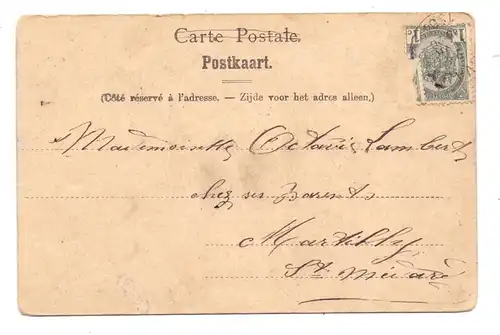 Carte Postale.
Postkaart.
(Côté réservé à l'adresse. — Zijde voor het adres alleen.)
Mademoiselle Octavie Lambert
chez ses Parents
Martilly
St Médard